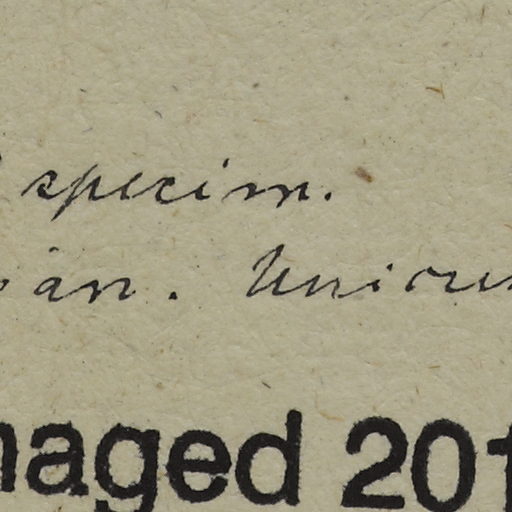 specim.
àn. Unicu
naged 201